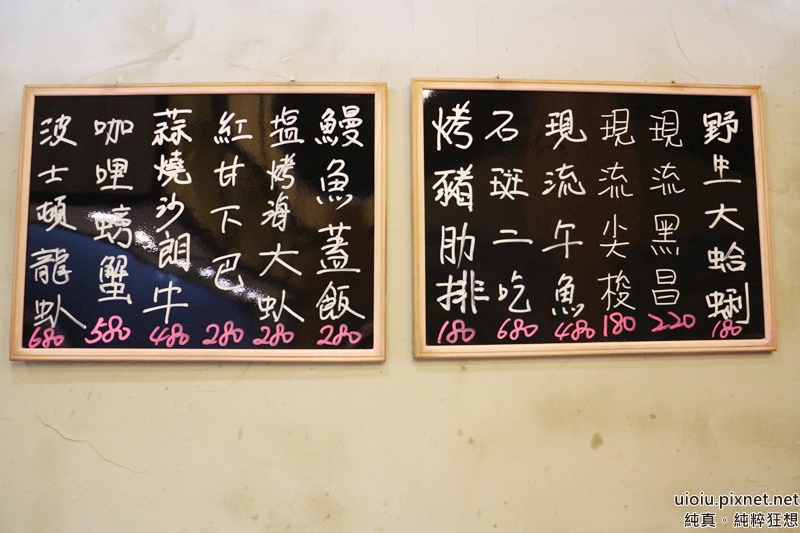 野生大蛤蜊
180
現流黑昌
220
現流尖梭
180
現流午魚
480
石斑二吃
680
烤豬肋排
180
鰻魚蓋飯
280
塩烤海大虾
280
紅甘下巴
280
蒜燒沙朗牛
480
咖哩螃蟹
580
波士頓龍虾
680
uioiu.pixnet.net
純真。純粹狂想